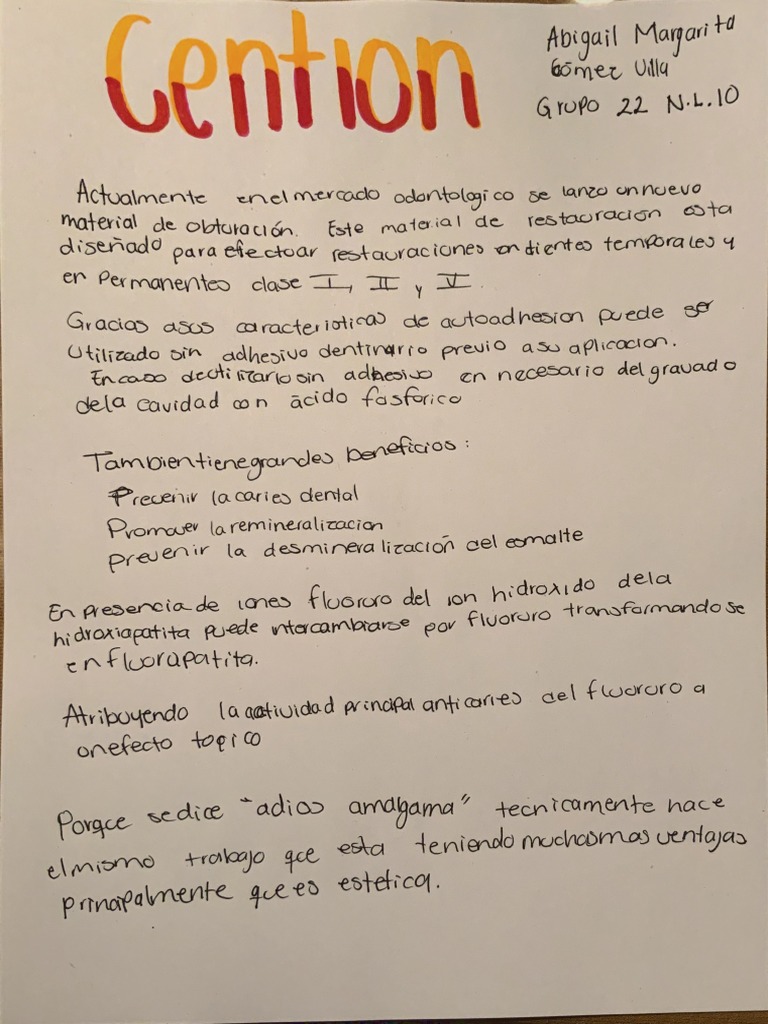 Cention
Abigail Margarita
Gómez Villa
Grupo 22 N.L.10
Actualmente en el mercado odontologico se lanzo un nuevo
material de obturación. Este material de restauración esta
diseñado para efectuar restauraciones en dientes temporales y
en permanentes clase I, II y V.
Gracias asus caracteristicas de autoadhesion puede ser
utilizado sin adhesivo dentinario previo a su aplicacion.
En caso de utilizarlo sin adhesivo en necesario del gravado
dela cavidad con ácido fosforico
Tambien tiene grandes beneficios:
Prevenir la caries dental
Promover la remineralizacion
prevenir la desmineralización del esmalte
En presencia de iones fluoruro del ion hidroxido dela
hidroxiapatita puede intercambiarse por fluoruro transformandose
en fluorapatita.
Atribuyendo la actividad principal anticaries del fluoruro a
un efecto topico
Porque se dice "adios amalgama" tecnicamente hace
el mismo trabajo que esta teniendo muchas mas ventajas
principalmente que es estetica.